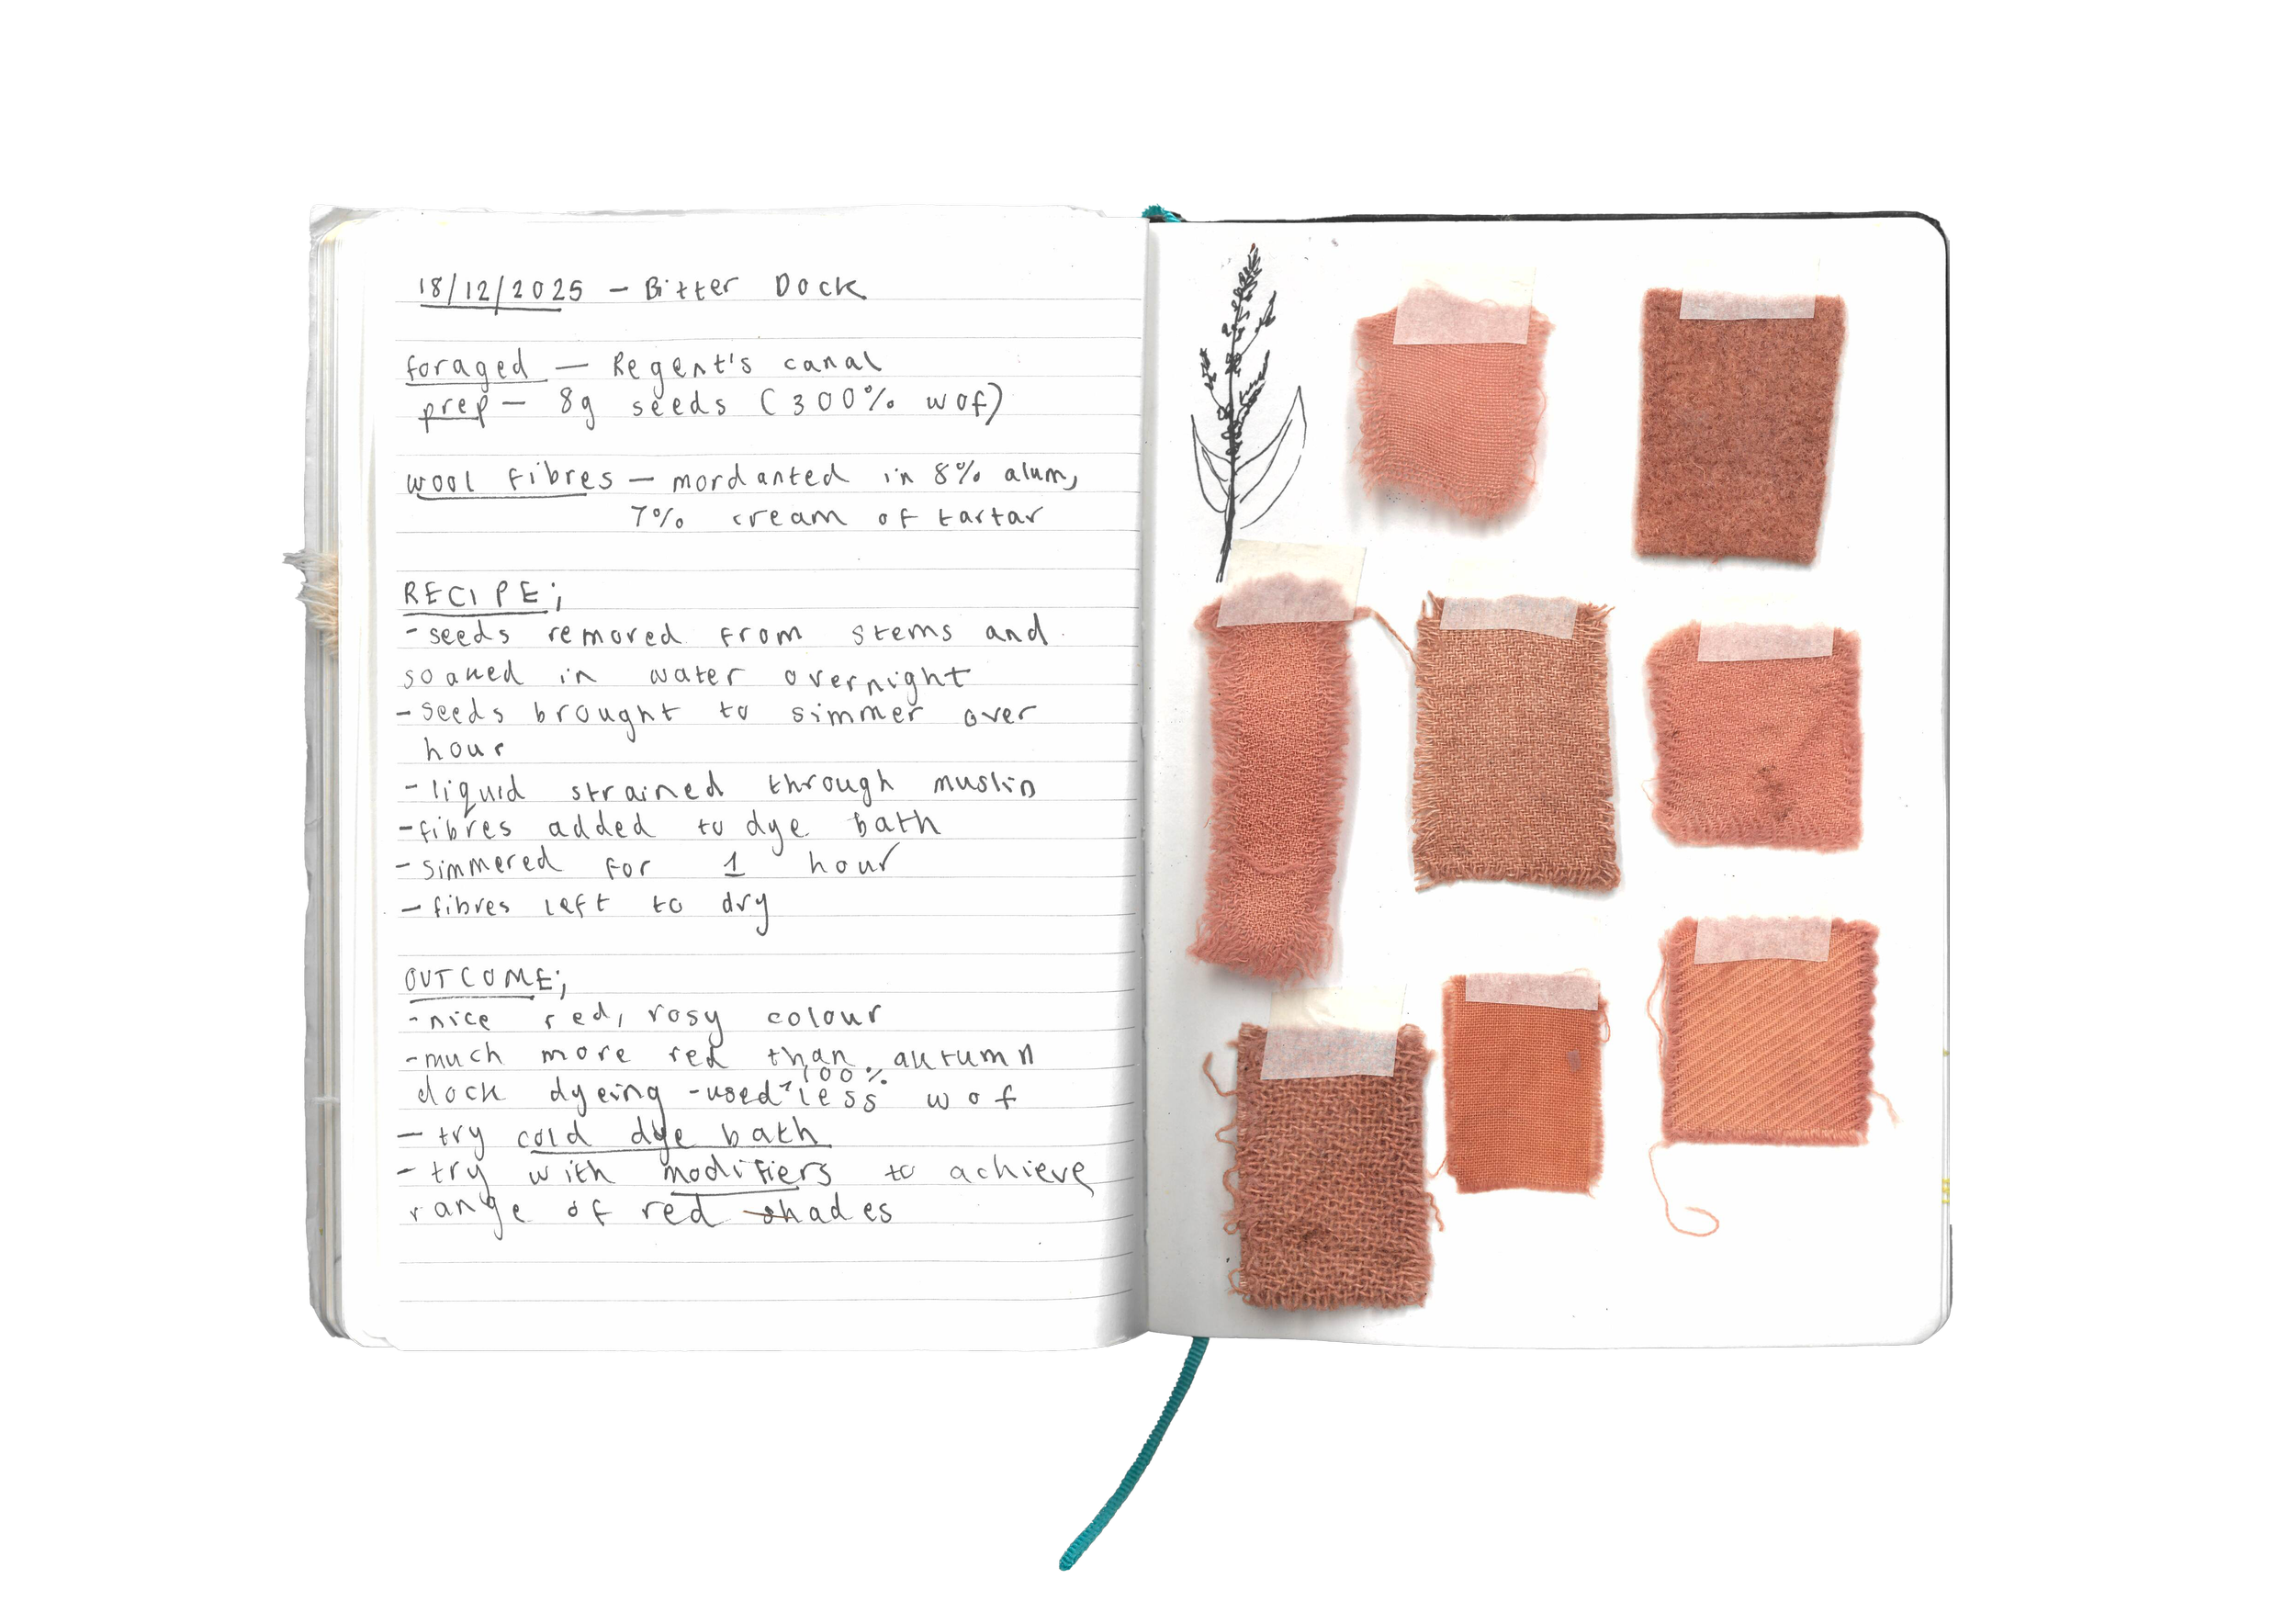 18/12/2025 - Bitter Dock
foraged - Regent's canal
prep - 8g seeds (300% wof)
wool fibres - mordanted in 8% alum,
7% cream of tartar
RECIPE;
- seeds removed from stems and
soaked in water overnight
- seeds brought to simmer over
hour
- liquid strained through muslin
- fibres added to dye bath
- simmered for 1 hour
- fibres left to dry
OUTCOME;
- nice red, rosy colour
- much more red than autumn
100%
dock dyeing - used less wof
- try cold dye bath
- try with modifiers to achieve
range of red shades